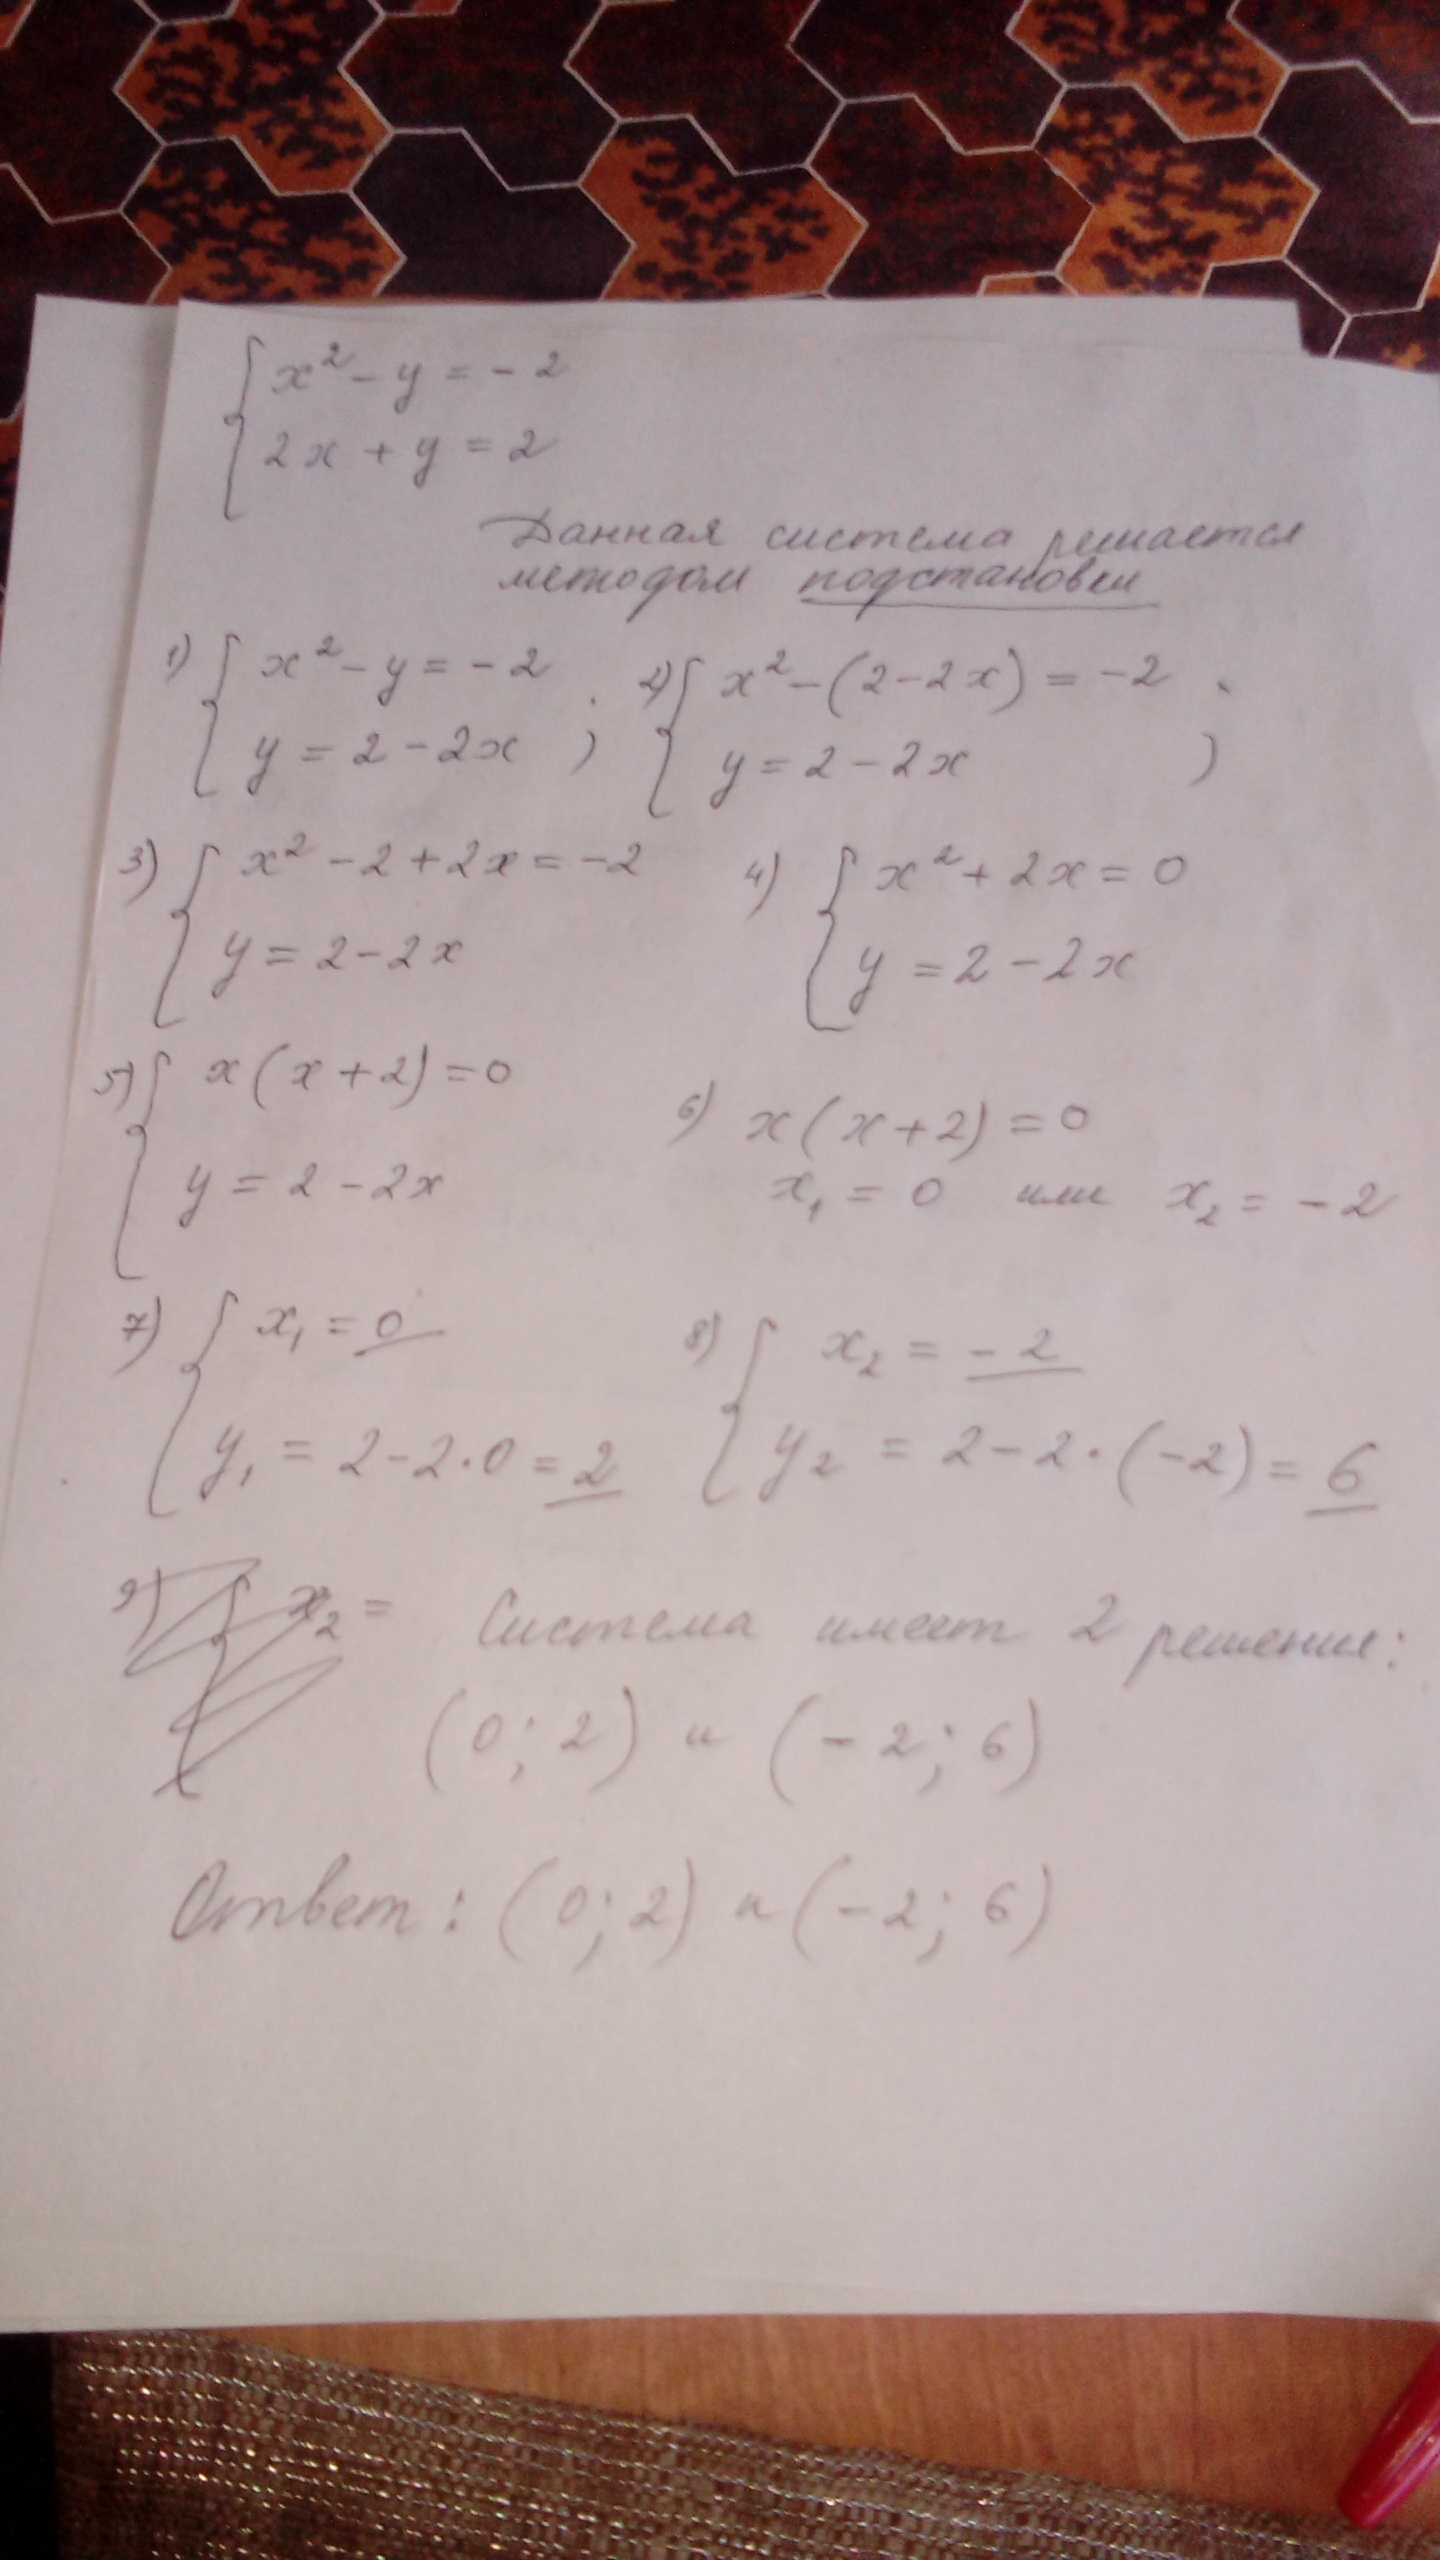 { x² - y = - 2
{ 2x + y = 2
Данная система решается
методом подстановки
1) { x² - y = - 2
{ y = 2 - 2x ;
2) { x² - (2 - 2x) = -2
{ y = 2 - 2x ;
3) { x² - 2 + 2x = -2
{ y = 2 - 2x
4) { x² + 2x = 0
{ y = 2 - 2x
5) { x(x + 2) = 0
{ y = 2 - 2x
6) x(x + 2) = 0
x₁ = 0 или x₂ = - 2
7) { x₁ = 0
{ y₁ = 2 - 2·0 = 2
8) { x₂ = - 2
{ y₂ = 2 - 2·(-2) = 6
9) { x₂ =
Система имеет 2 решения:
(0; 2) и (- 2; 6)
Ответ: (0; 2) и (- 2; 6)